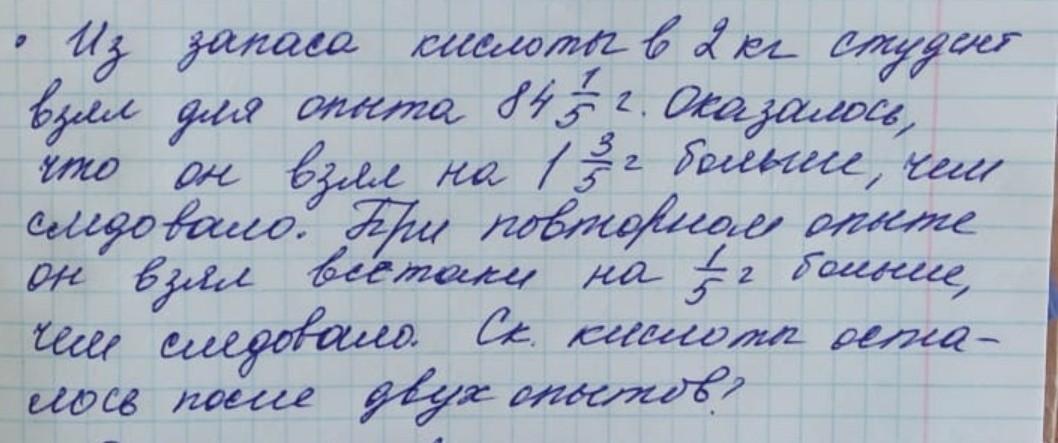 • Из запаса кислоты в 2 кг студент
взял для опыта 84 1/5 г. Оказалось,
что он взял на 1 3/5 г больше, чем
следовало. При повторном опыте
он взял всетаки на 1/5 г больше,
чем следовало. Ск. кислоты оста-
лось после двух опытов?